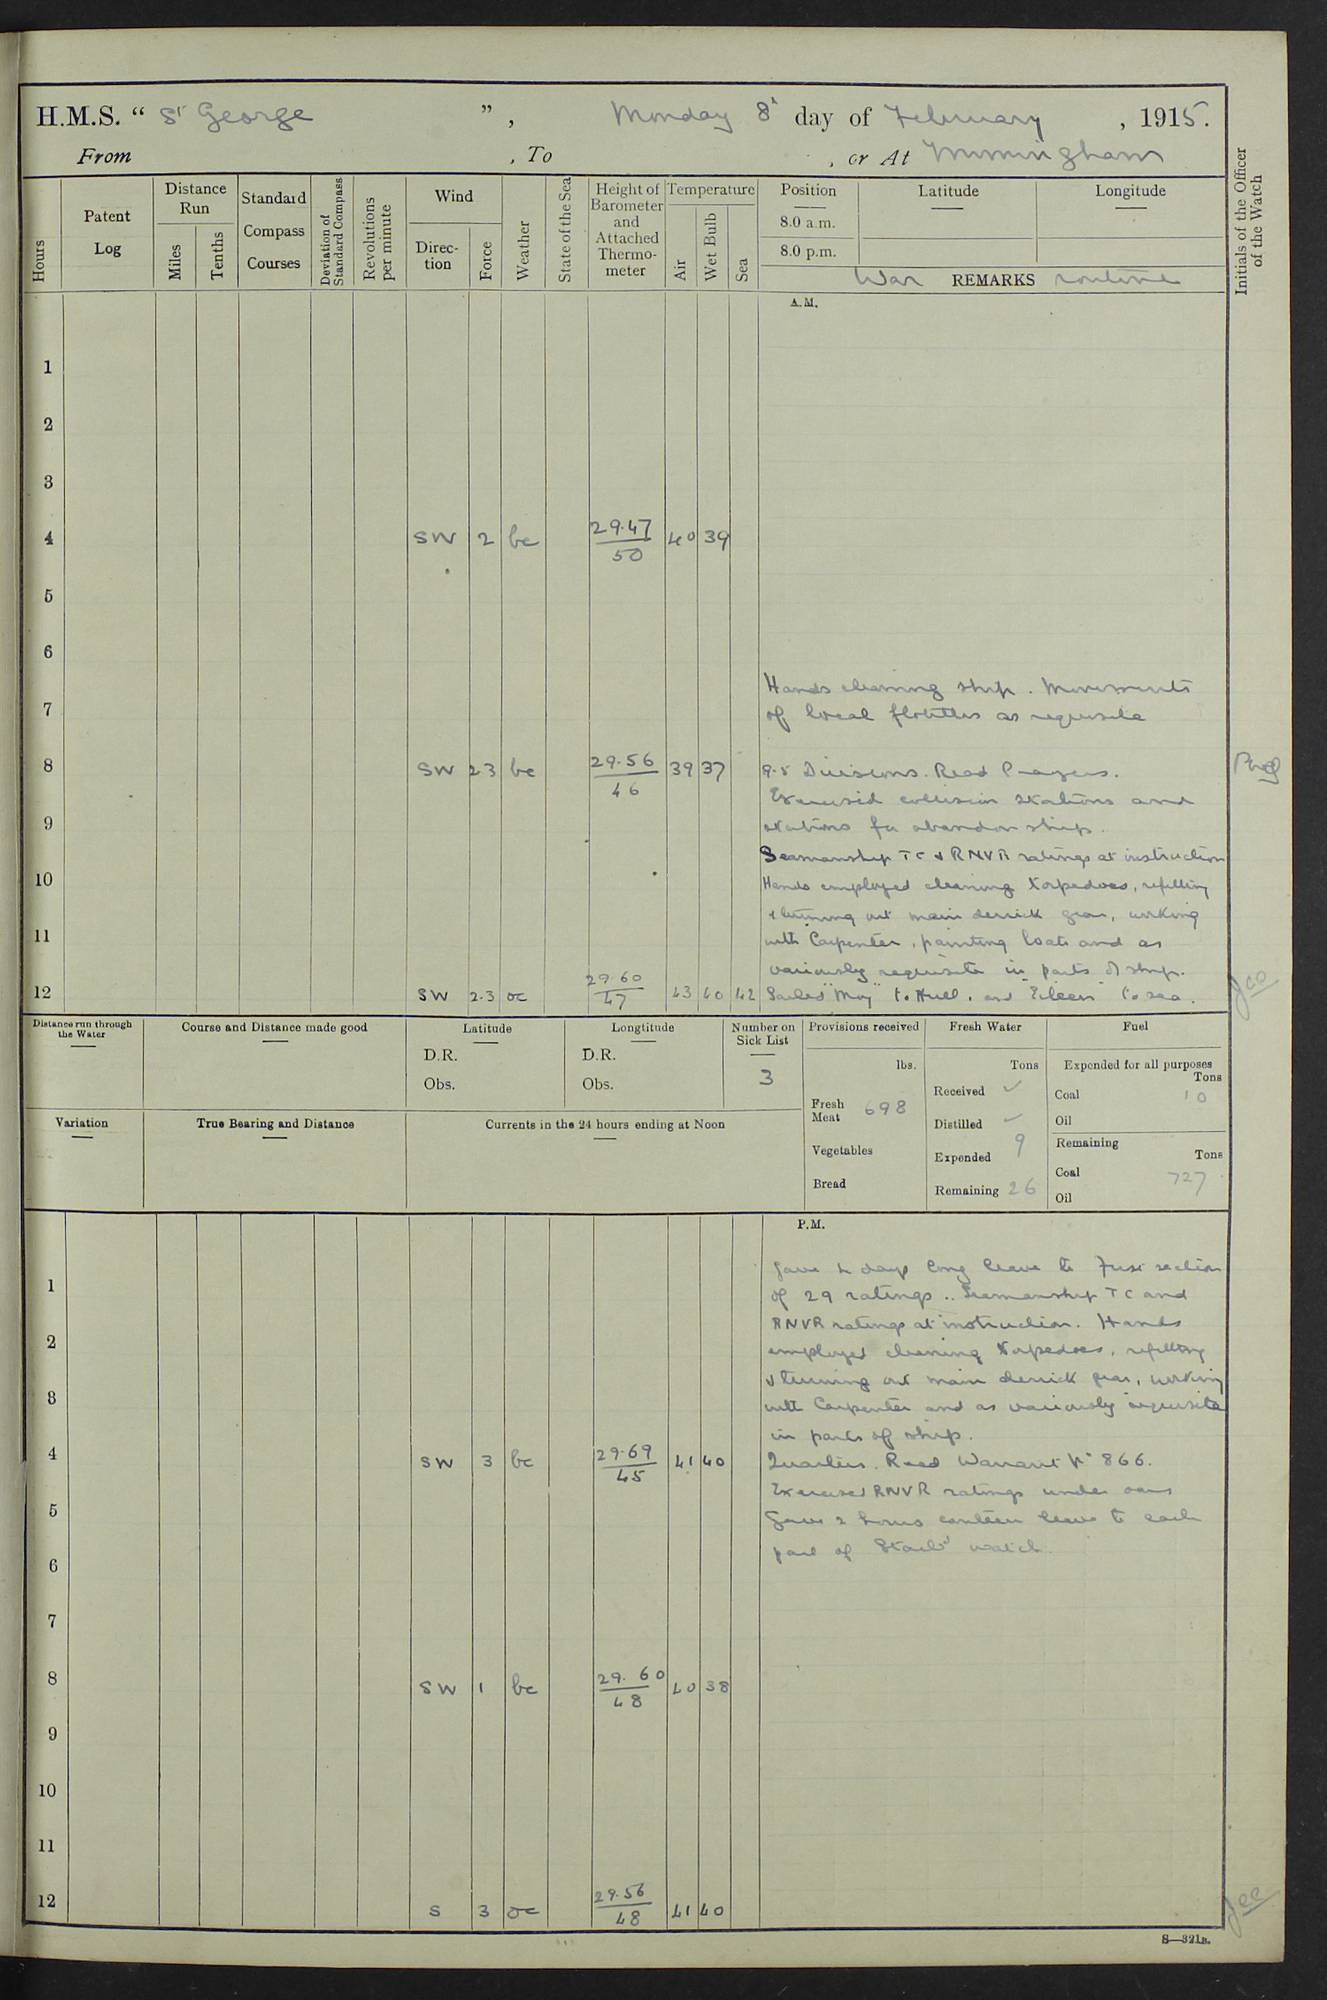 H.M.S. “ St George ” , Monday 8th day of February , 1915.
From , To , or At Immingham
Hours
Patent Log
Distance Run
Miles
Tenths
Standard Compass Courses
Deviation of Standard Compass
Revolutions per minute
Wind
Direction
Force
Weather
State of the Sea
Height of Barometer and Attached Thermometer
Temperature
Air
Wet Bulb
Sea
Position
Latitude
Longitude
8.0 a.m.
8.0 p.m.
Initials of the Officer of the Watch
War REMARKS routine
A.M.
1
2
3
4 SW 2 bc 29.47 50 40 39
5
6
Hands cleaning ship. Movements
7
of local flotillas as requisite
8 SW 2 3 bc 29.56 46 39 37 9.5 Divisions. Read Prayers.
Exercised collision stations and
9
stations for abandon ship.
Seamanship TC & RNVR ratings at instruction
10
Hands employed cleaning torpedoes, refitting
& turning out main derrick gear, working
11
with Carpenter, painting boats and as
variously requisite in parts of ship.
12 SW 2.3 oc 29.60 47 43 40 42 Sailed "May" to Hull. and "Eileen" to sea.
Distance run through the Water
Course and Distance made good
Latitude
D.R.
Obs.
Longtitude
D.R.
Obs.
Number on Sick List
3
Provisions received
lbs.
Fresh Meat 698
Vegetables
Bread
Fresh Water
Tons
Received ✓
Distilled ✓
Expended 9
Remaining 26
Fuel
Expended for all purposes
Tons
Coal 10
Oil
Remaining
Tons
Coal 727
Oil
Variation
True Bearing and Distance
Currents in the 24 hours ending at Noon
P.M.
Gave 4 days long leave to first section
1
of 29 ratings. Seamanship TC and
RNVR ratings at instruction. Hands
2
employed cleaning torpedoes, refitting
& turning out main derrick gear, working
3
with Carpenter and as variously requisite
in parts of ship.
4 SW 3 bc 29.69 45 41 40 Quarters. Read Warrant No 866.
Exercised RNVR ratings under oars
5
Gave 2 hours canteen leave to each
part of Starbd watch.
6
7
8 SW 1 bc 29.60 48 40 38
9
10
11
12 S 3 oc 29.56 48 41 40
S—321B.